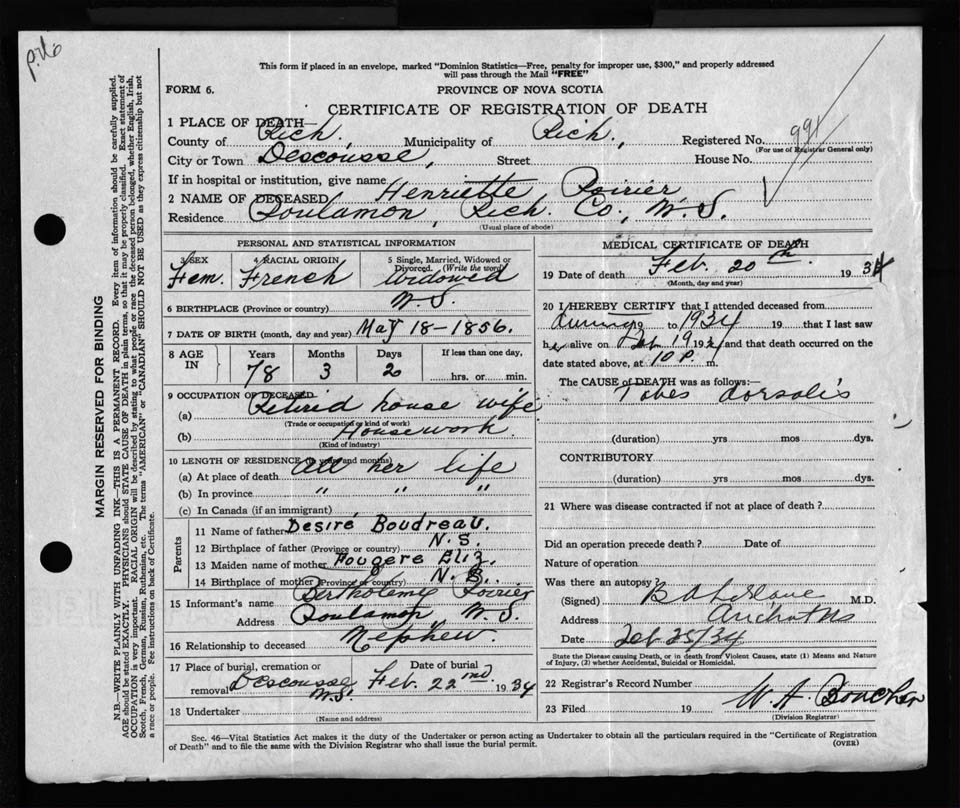 p.16
This form if placed in an envelope, marked "Dominion Statistics—Free, penalty for improper use, $300," and properly addressed
will pass through the Mail "FREE"
FORM 6.
PROVINCE OF NOVA SCOTIA
CERTIFICATE OF REGISTRATION OF DEATH
991
1 PLACE OF DEATH—
County of Rich. Municipality of Rich, Registered No.
(For use of Registrar General only)
City or Town Descousse, Street House No.
If in hospital or institution, give name
2 NAME OF DECEASED Henriette Poirier
Residence Poulamon, Rich. Co., N.S.
(Usual place of abode)
PERSONAL AND STATISTICAL INFORMATION
3 SEX 4 RACIAL ORIGIN 5 Single, Married, Widowed or
Divorced. (Write the word)
Fem. French Widowed
6 BIRTHPLACE (Province or country) N.S.
7 DATE OF BIRTH (month, day and year) May 18-1856.
8 AGE IN Years Months Days If less than one day,
78 3 20 hrs. or min.
9 OCCUPATION OF DECEASED
(a) Retired house wife
(Trade or occupation or kind of work)
(b) Housework.
(Kind of industry)
10 LENGTH OF RESIDENCE (in years and months)
(a) At place of death All her life
(b) In province " " "
(c) In Canada (if an immigrant)
Parents
11 Name of father Desiré Boudreau.
12 Birthplace of father (Province or country) N.S.
13 Maiden name of mother Fougere Eliz.
14 Birthplace of mother (Province or country) N.B.
15 Informant's name Bertholemie Poirier
Address Poulamon, N.S.
16 Relationship to deceased Nephew.
17 Place of burial, cremation or Date of burial
removal Descousse N.S. Feb. 22nd. 1934
18 Undertaker
(Name and address)
MEDICAL CERTIFICATE OF DEATH
19 Date of death Feb. 20th. 1934
(Month, day and year)
20 I HEREBY CERTIFY that I attended deceased from
during to 1934 19 that I last saw
her alive on Feb 19 1934 and that death occurred on the
date stated above, at 10 P. m.
The CAUSE of DEATH was as follows:
Tabes dorsalis
(duration) yrs mos dys.
CONTRIBUTORY
(duration) yrs mos dys.
21 Where was disease contracted if not at place of death?
Did an operation precede death? Date of
Nature of operation
Was there an autopsy?
(Signed) M.D.
Address Arichat NS
Date Feb 25/34
State the Disease causing Death, or in death from Violent Causes, state (1) Means and Nature
of Injury, (2) whether Accidental, Suicidal or Homicidal.
22 Registrar's Record Number
23 Filed 19 W. A. Boucher
(Division Registrar)
Sec. 46—Vital Statistics Act makes it the duty of the Undertaker or person acting as Undertaker to obtain all the particulars required in the "Certificate of Registration
of Death" and to file the same with the Division Registrar who shall issue the burial permit.
(OVER)
MARGIN RESERVED FOR BINDING
N.B.—WRITE PLAINLY WITH UNFADING INK—THIS IS A PERMANENT RECORD. Every item of information should be carefully supplied.
AGE should be stated EXACTLY. PHYSICIANS should STATE CAUSE OF DEATH in plain terms, so that it may be properly classified. Exact statement of
OCCUPATION is very important. RACIAL ORIGIN will be described by stating to what people or race the deceased person belonged, whether English, Irish,
Scotch, French, German, Russian, Ruthenian, etc. The terms "AMERICAN" or "CANADIAN" SHOULD NOT BE USED as they express citizenship but not
a race or people. See instructions on back of Certificate.